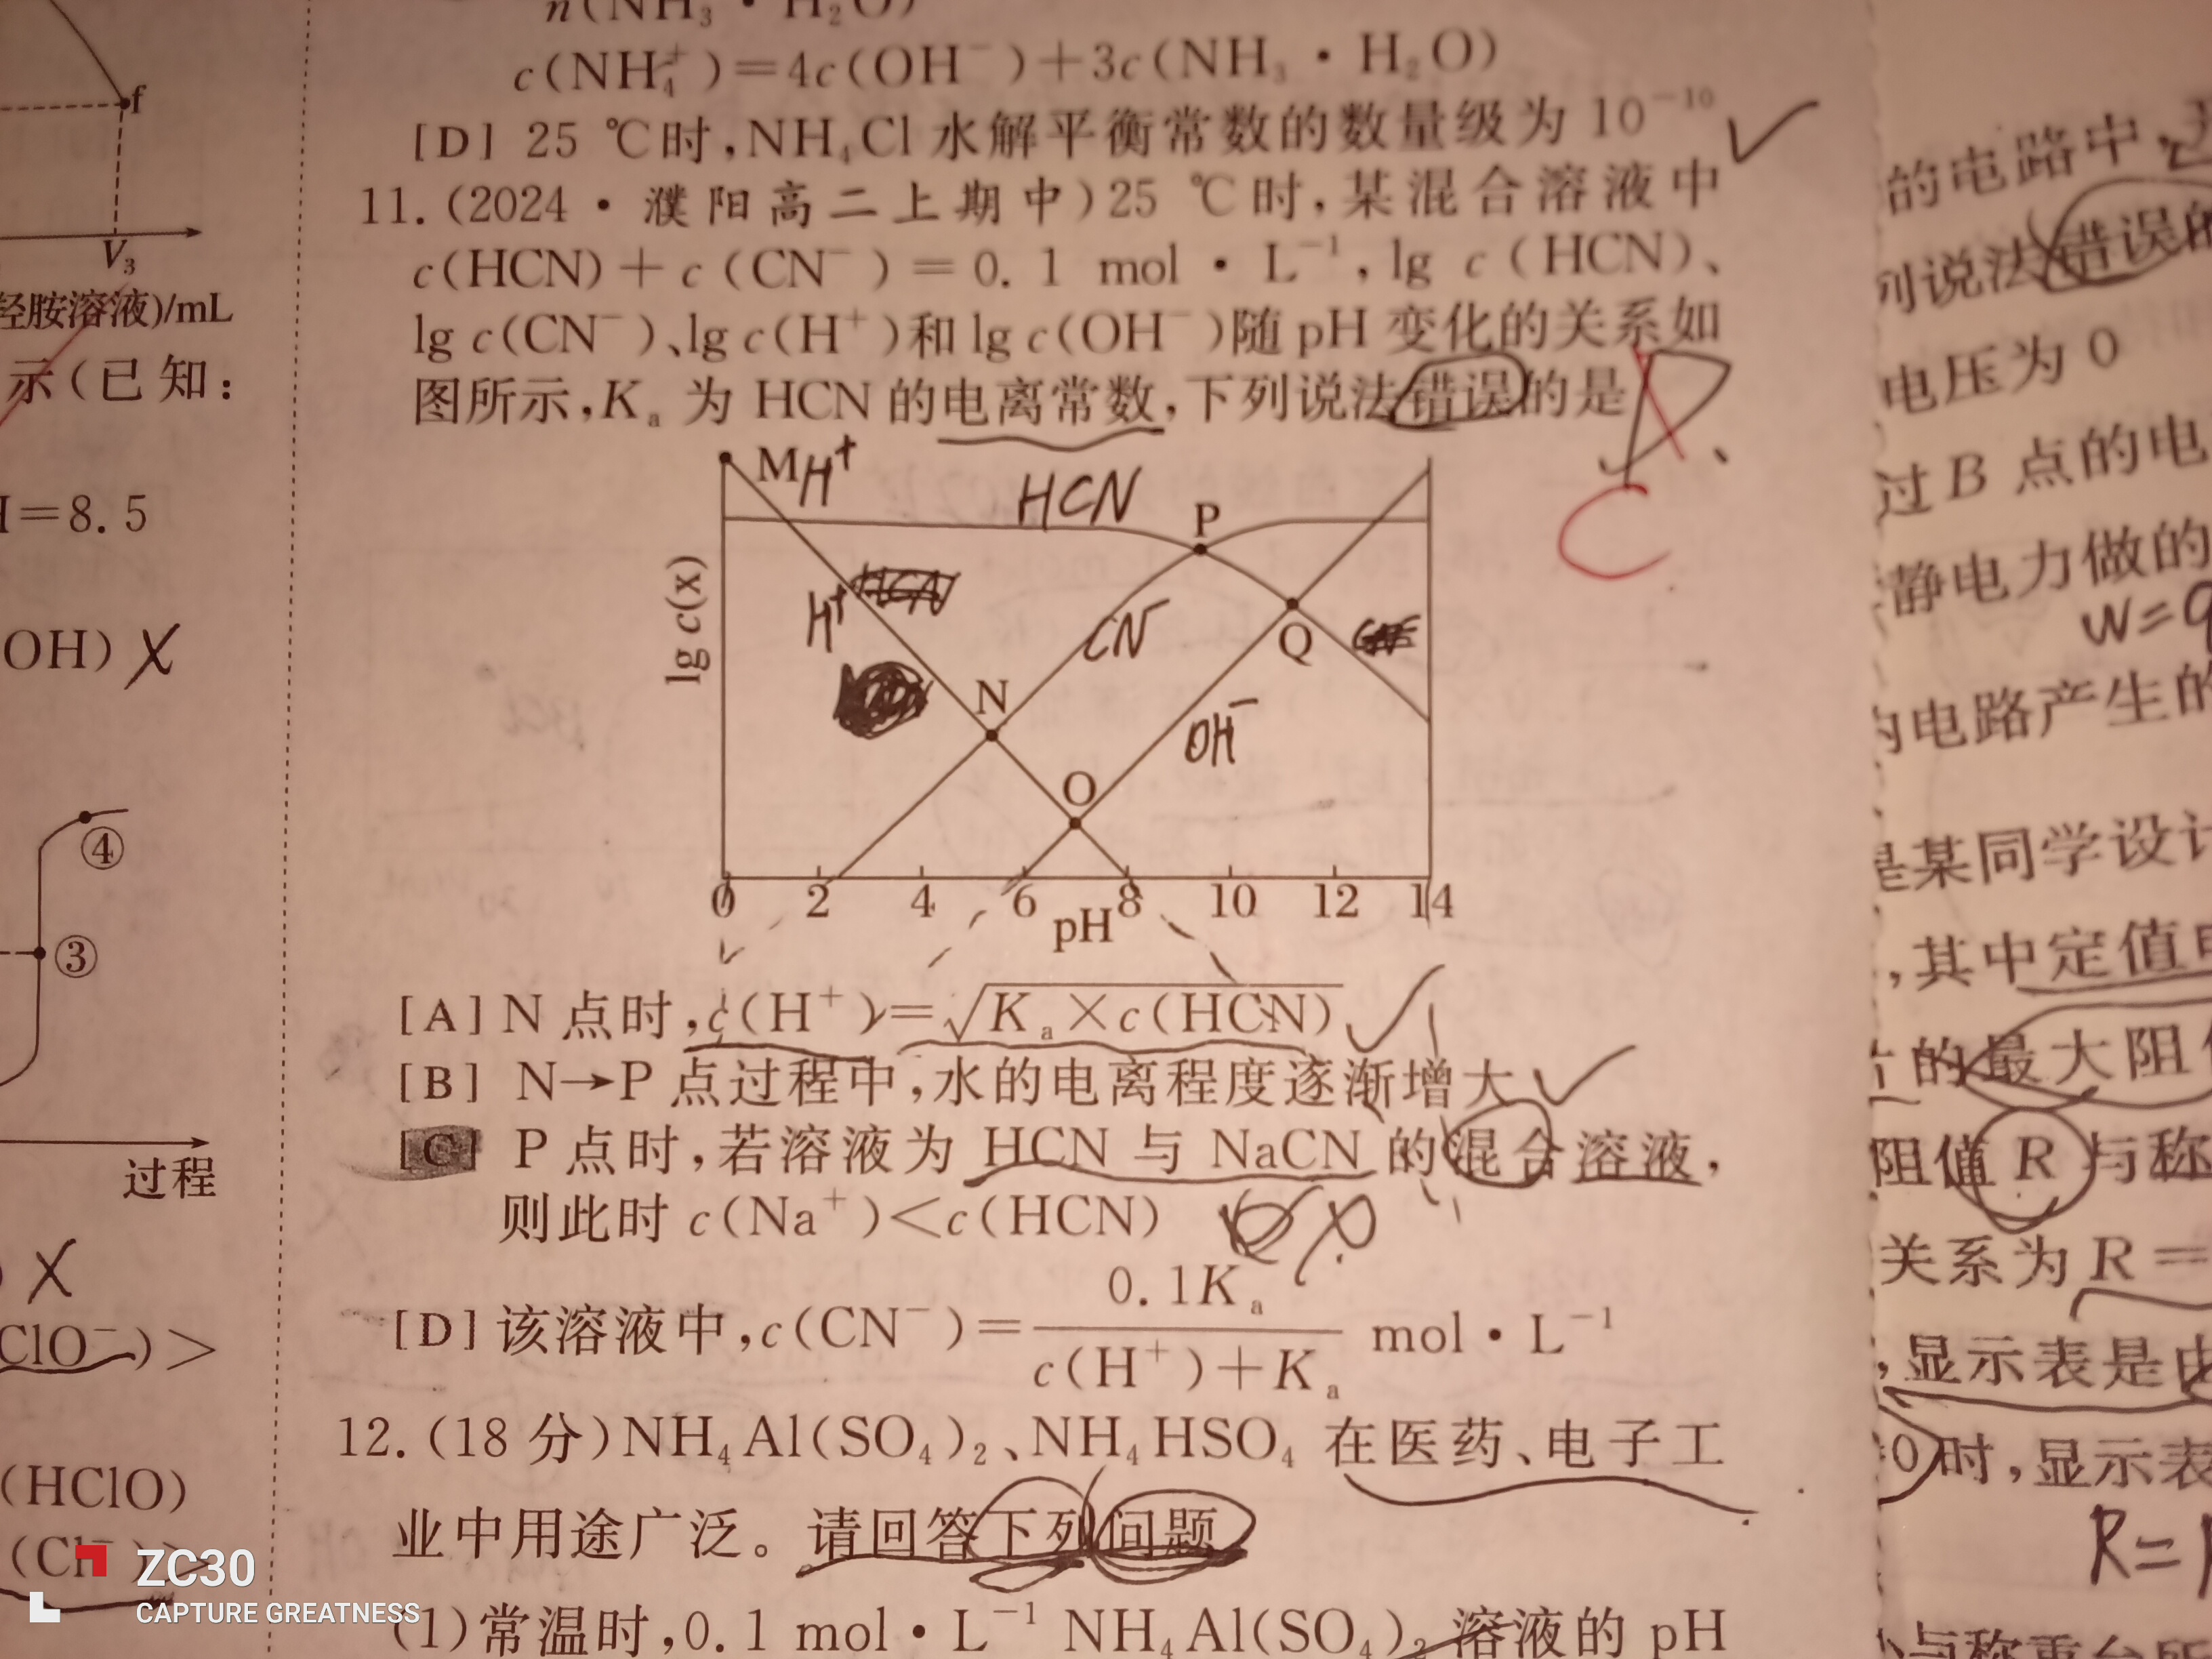 n(NH₃·H₂O)
c(NH₄⁺)=4c(OH⁻)+3c(NH₃·H₂O)
[D] 25 ℃时,NH₄Cl 水解平衡常数的数量级为 10⁻¹⁰ ✓
11.(2024·濮阳高二上期中)25 ℃时,某混合溶液中
c(HCN)+c(CN⁻)=0.1 mol·L⁻¹,lg c(HCN)、
lg c(CN⁻)、lg c(H⁺)和 lg c(OH⁻)随 pH 变化的关系如
图所示,Kₐ 为 HCN 的电离常数,下列说法错误的是
D
C
M H⁺
HCN
P
H⁺
CN⁻
Q
N
OH⁻
O
lg c(x)
0 2 4 6 8 10 12 14
pH
[A] N 点时,c(H⁺)=√(Kₐ×c(HCN)) ✓
[B] N→P 点过程中,水的电离程度逐渐增大 ✓
[C] P 点时,若溶液为 HCN 与 NaCN 的混合溶液,
则此时 c(Na⁺)<c(HCN)
[D] 该溶液中,c(CN⁻)=0.1Kₐ/(c(H⁺)+Kₐ) mol·L⁻¹
12.(18 分)NH₄Al(SO₄)₂、NH₄HSO₄ 在医药、电子工
业中用途广泛。请回答下列问题
(1)常温时,0.1 mol·L⁻¹ NH₄Al(SO₄)₂ 溶液的 pH
f
V₃
羟胺溶液)/mL
示(已知:
H=8.5
OH) X
④
③
过程
) X
ClO⁻)>
(HClO)
(Cl⁻)>
的电路中,
列说法错误的
电压为 0
过 B 点的电
静电力做的
W=q
的电路产生的
是某同学设计
,其中定值电
片的最大阻值
阻值 R 与称
关系为 R=
,显示表是由
0 时,显示表
R=
与称重台所
ZC30
CAPTURE GREATNESS